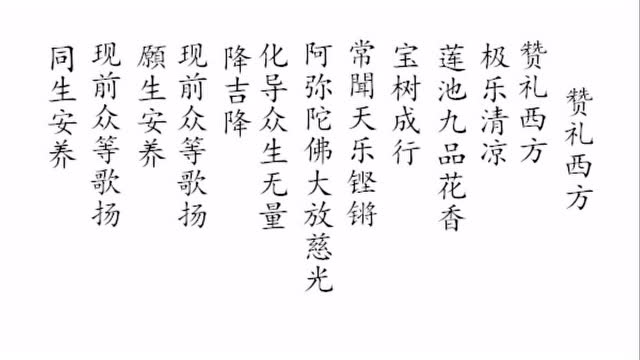 赞礼西方
赞礼西方
极乐清凉
莲池九品花香
宝树成行
常聞天乐铿锵
阿弥陀佛大放慈光
化导众生无量
降吉降
现前众等歌扬
願生安养
现前众等歌扬
同生安养